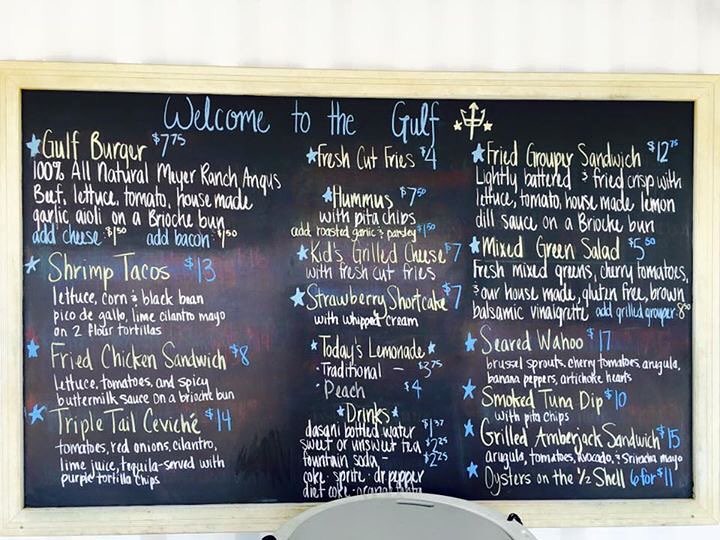 Welcome to the Gulf
Gulf Burger $7.75
100% All Natural Meyer Ranch Angus
Beef, lettuce, tomato, house made
garlic aioli on a Brioche bun
add cheese $1.50 add bacon $1.50
Shrimp Tacos $13
lettuce, corn & black bean
pico de gallo, lime cilantro mayo
on 2 flour tortillas
Fried Chicken Sandwich $8
lettuce, tomatoes, and spicy
buttermilk sauce on a brioche bun
Triple Tail Ceviché $14
tomatoes, red onions, cilantro,
lime juice, tequila-served with
purple tortilla chips
Fresh Cut Fries $4
Hummus $7.50
with pita chips
add roasted garlic & parsley $1.50
Kid's Grilled Cheese $7
with fresh cut fries
Strawberry Shortcake $7
with whipped cream
Today's Lemonade
- Traditional - $3.75
- Peach $4
Drinks
dasani bottled water $1.37
sweet or unsweet tea $2.25
fountain soda - $2.25
coke · sprite · dr pepper
diet coke · orange fanta
Fried Grouper Sandwich $12.75
Lightly battered & fried crisp with
lettuce, tomato, house made lemon
dill sauce on a Brioche bun
Mixed Green Salad $5.50
Fresh mixed greens, cherry tomatoes,
& our house made, gluten free, brown
balsamic vinaigrette add grilled grouper 8.00
Seared Wahoo $17
brussel sprouts, cherry tomatoes, arugula,
banana peppers, artichoke hearts
Smoked Tuna Dip $10
with pita chips
Grilled Amberjack Sandwich $15
arugula, tomatoes, avocado, & Sriracha mayo
Oysters on the 1/2 Shell 6 for $11